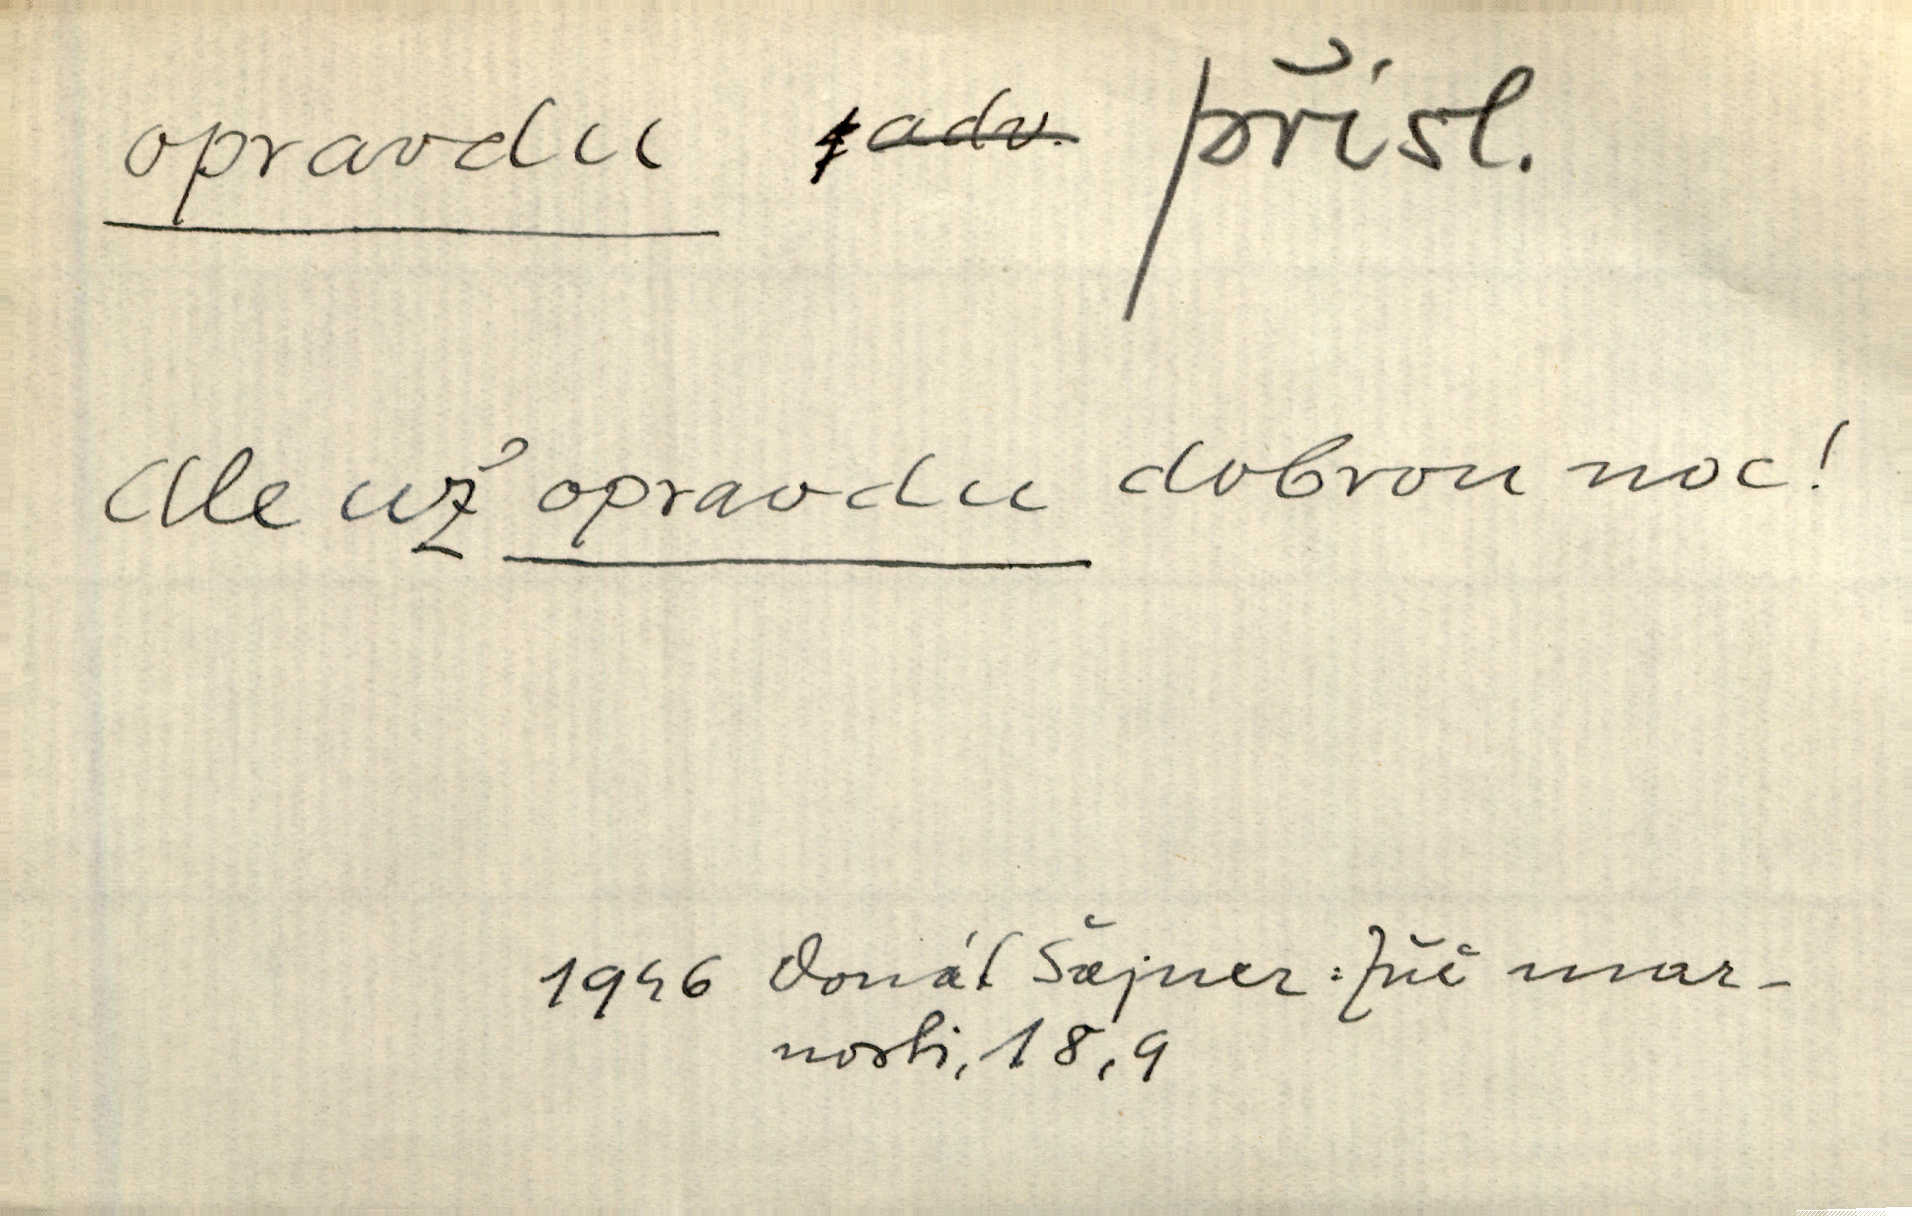 opravdu adv. přísl.
Ale už opravdu dobrou noc!
1946 Donát Šajner: Zuč mar-
nosti, 18,9